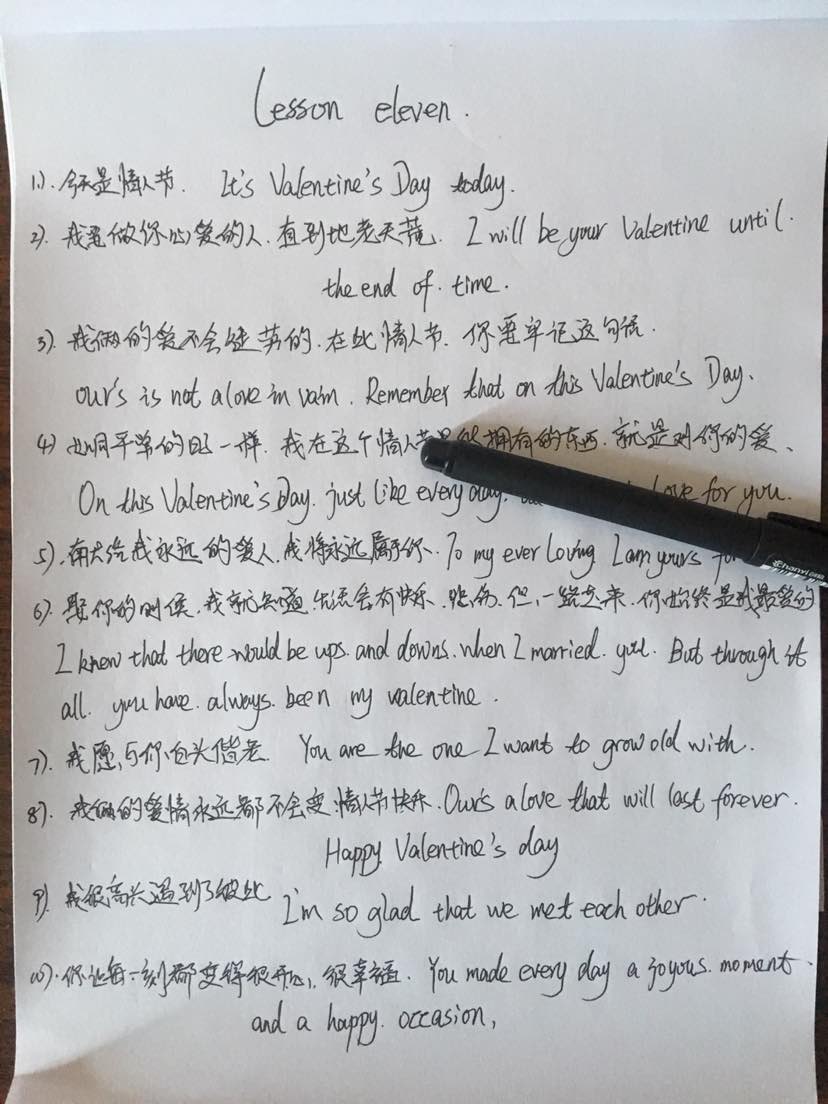 Lesson eleven.
1). 今天是情人节. It's Valentine's Day today.
2). 我要做你心爱的人.直到地老天荒. I will be your Valentine until.
the end of. time.
3). 我俩的爱不会徒劳的.在此情人节. 你要牢记这句话.
our's is not a love in vain. Remember that on this Valentine's Day.
4) 如同平常的日子一样.我在这个情人节 拥有的东西.就是对你的爱、
On this Valentine's Day. just like every day. love for you.
5). 献给我永远的爱人.我将永远属于你. To my ever loving I am yours
6). 娶你的时候.我就知道.生活会有快乐.悲伤.但.一路走来.你始终是我最爱的
I knew that there would be ups. and downs. when I married. you. But through it
all. you have. always. been my valentine.
7). 我愿与你白头偕老. You are the one I want to grow old with.
8). 我俩的爱情永远都不会变.情人节快乐. Our's a love that will last forever.
Happy Valentine's day
9). 我很高兴遇到了彼此 I'm so glad that we met each other.
10). 你让每一刻都变得很开心,很幸福. You made every day a joyous. moment.
and a happy. occasion,